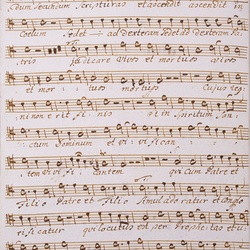 dum secundum Scripturas et ascendit ascendit in
Coelum Sedet ad dexteram Sedet ad dexteram Pa
tris judicare vivos et mortuos vivos
et mor tuos mortuos Cujus reg
ni non erit finis et in Spiritum San
ctum Dominum et vivifican
tem vivifi cantem qui cum Patre et
Filio Patre et Filio Simul adoratur et conglo
rificatur qui locutus est per Prophetas et